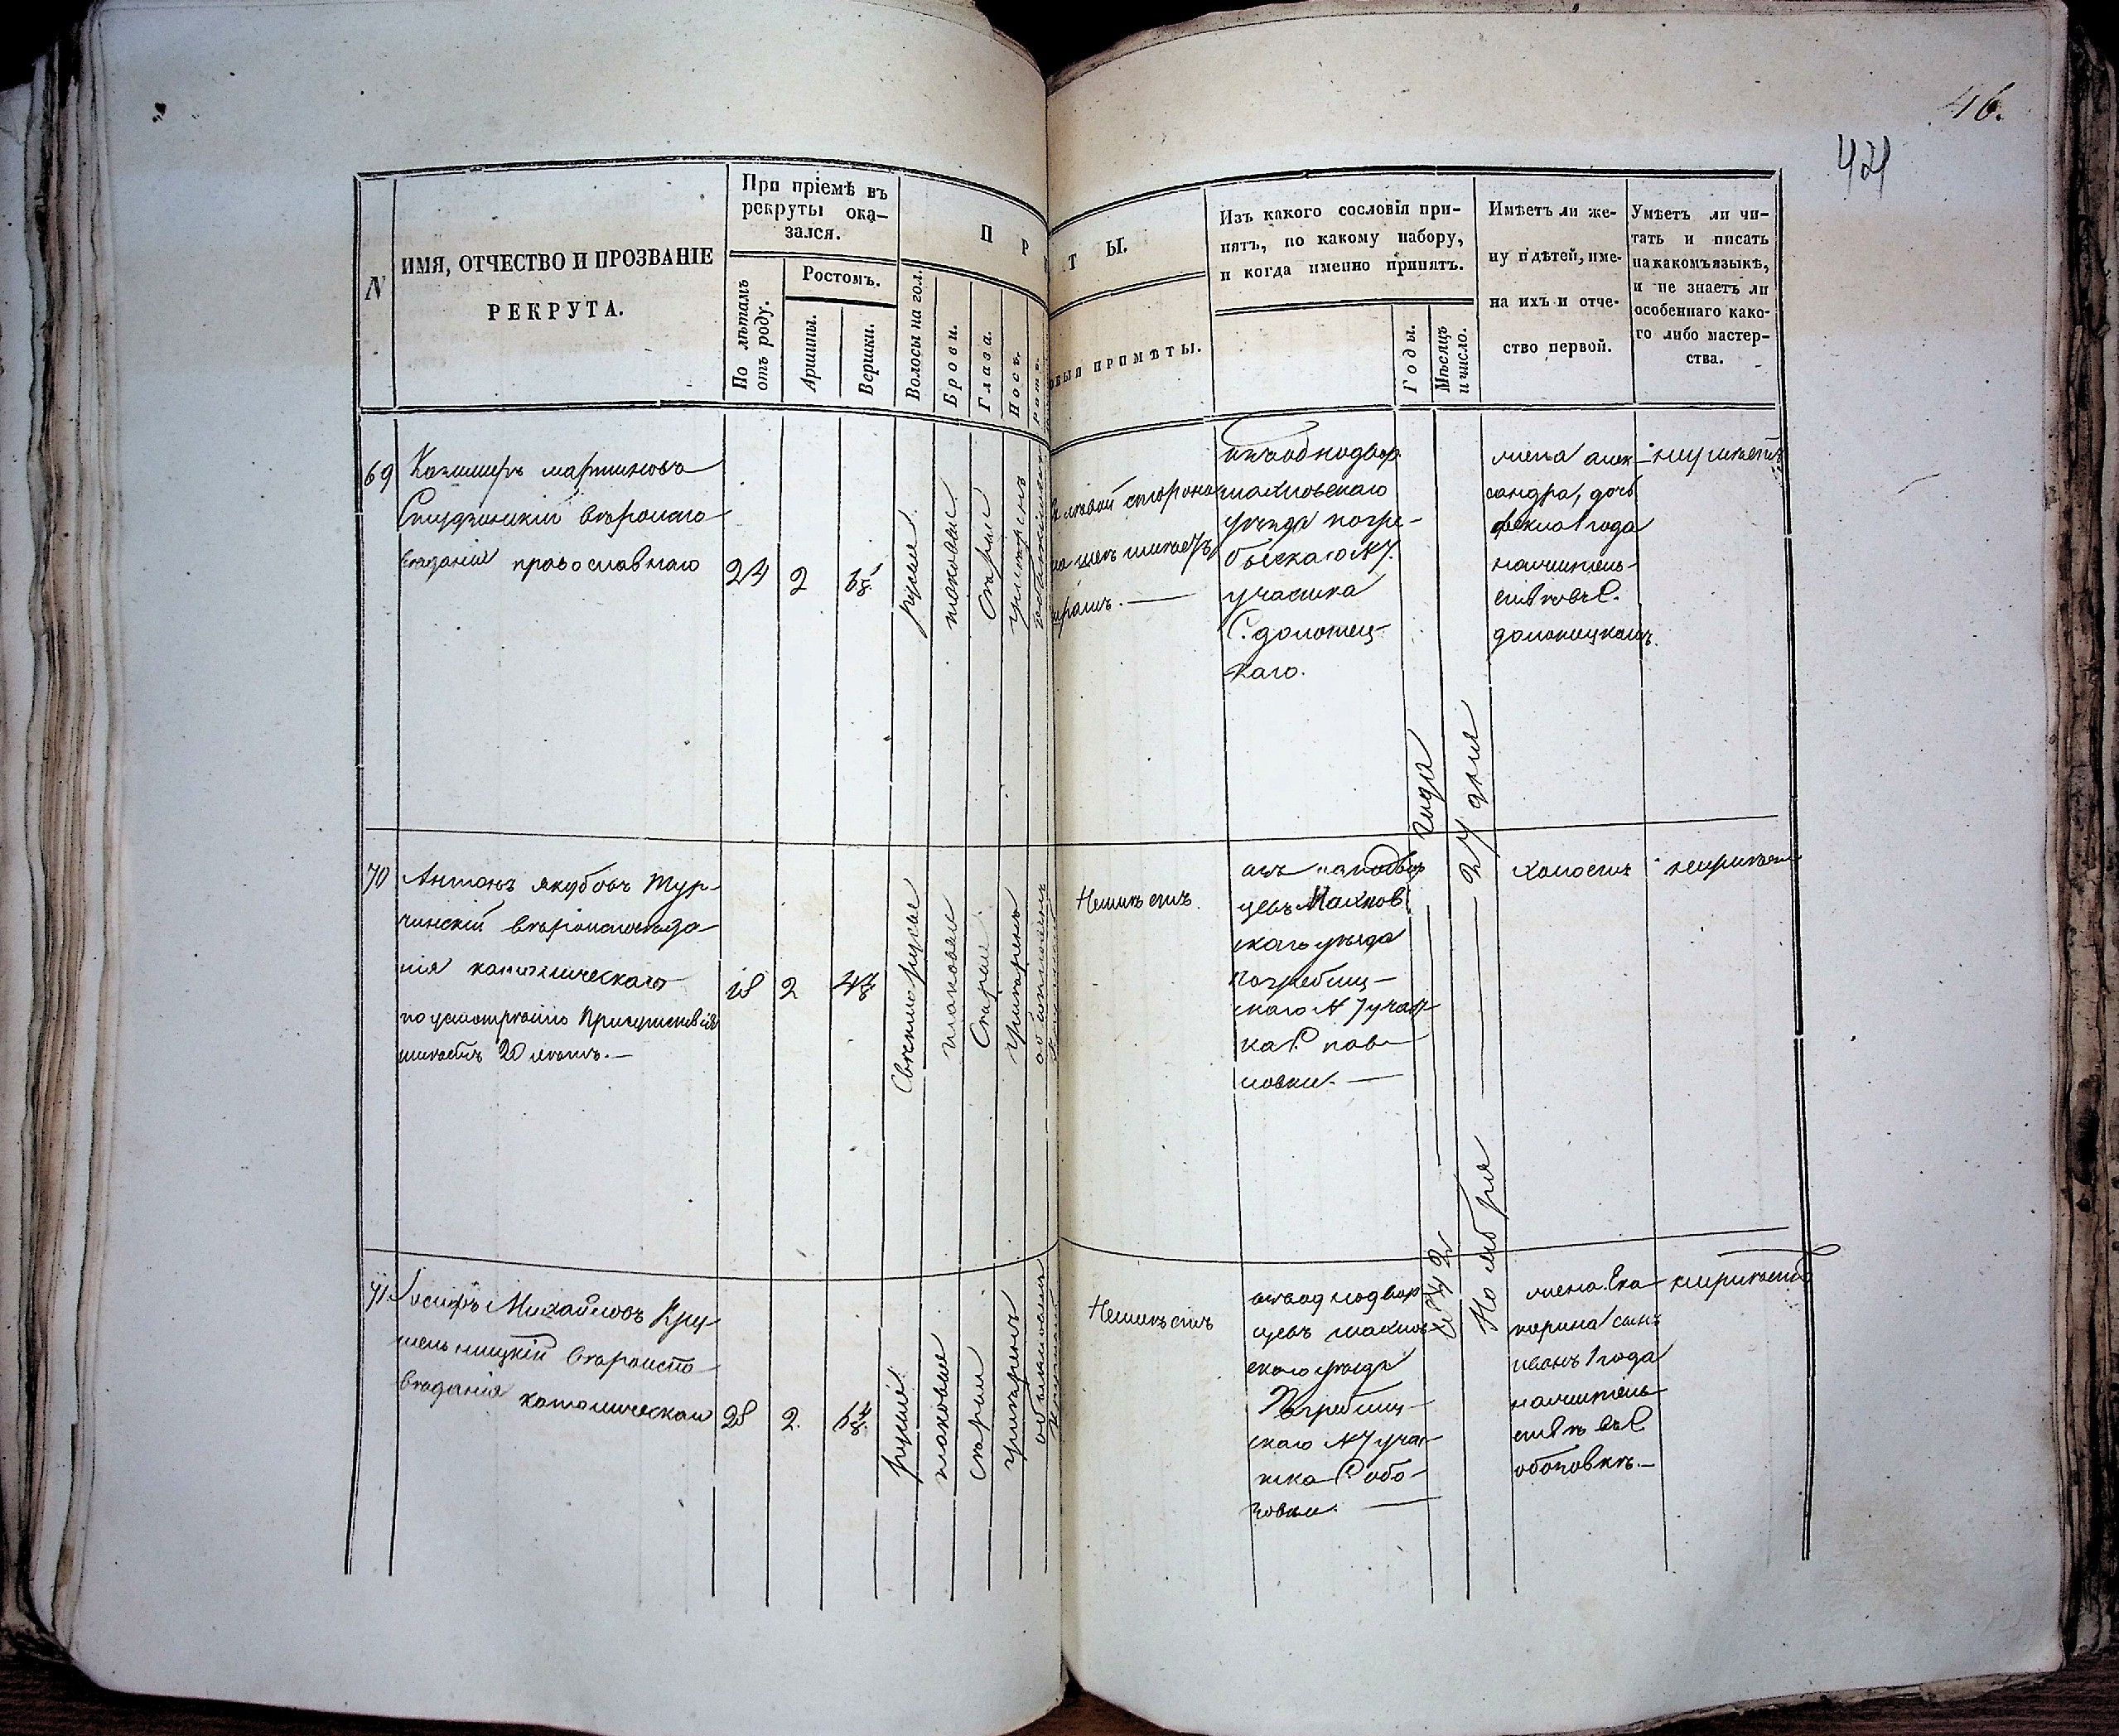 46.
421
N
ИМЯ, ОТЧЕСТВО И ПРОЗВАНІЕ
РЕКРУТА.
При пріемѣ въ
рекруты ока-
зался.
По лѣтамъ
отъ роду.
Ростомъ.
Аршины.
Вершки.
П Р
Волосы на гол.
Брови.
Глаза.
Носъ.
Ротъ.
Т Ы.
ПРИМѢТЫ.
Изъ какого сословія при-
нятъ, по какому набору,
и когда именно принятъ.
Годы.
Мѣсяцъ
и число.
Имѣетъ ли же-
ну и дѣтей, име-
на ихъ и отче-
ство первой.
Умѣетъ ли чи-
тать и писать
на какомъ языкѣ,
и не знаетъ ли
особеннаго како-
го либо мастер-
ства.
69
Казимиръ мартиновъ
вѣроиспо
веданія православнаго
24
2
6 1/8
русые
таковые
Серые
умѣренъ
в левой стороне
на шее имеетъ
шрамъ. —
изъ однодвор.
махновскаго
уезда погре-
быскаго №7.
участка
С. долотец-
каго.
жена алек-
сандра, дочь
фекла 1 года
жительство
въ С.
долотецкомъ.
неумѣетъ
70
Антонъ якубовъ Тур-
чинскій вероисповеда
нія католическаго
по усмотренію Присутствія
имѣетъ 20 летъ. —
18
2
4 4/8
Светлорусые
таковые
Серые
умеренъ
обыкновенный
Неимѣетъ.
изъ однодвор
цевъ Махнов
скаго уезда
Погребищ-
скаго №7 участ-
ка С. пав-
ловки. —
холостъ
неумѣетъ
71.
Іосифъ Михайловъ Кру-
шельницкій вероиспо
веданія католическаго
28
2.
6 4/8.
русые
таковые
серые
умеренъ
Неимѣетъ
изъ однодвор-
цевъ махнов-
скаго уезда
Погребищ-
скаго №7 учас-
тка С. обо-
зовки. —
1842 — года
Ноября — 24 дня
жена Ека
терина сынъ
иванъ 1 года
жительство
въ С
обозовке. —
неумѣетъ